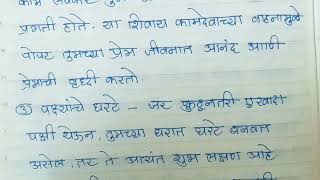 प्रगती होते. या शिवाय कामदेवाच्या वाहनामुळे
पोपट तुमच्या प्रेम जीवनात आनंद आणि
प्रेमाची वृध्दी करतो.
③ पक्ष्यांचे घरटे - जर कुठूनतरी एखादा
पक्षी येऊन, तुमच्या घरात घरटे बनवत
असेल, तर ते अत्यंत शुभ लक्षण आहे.